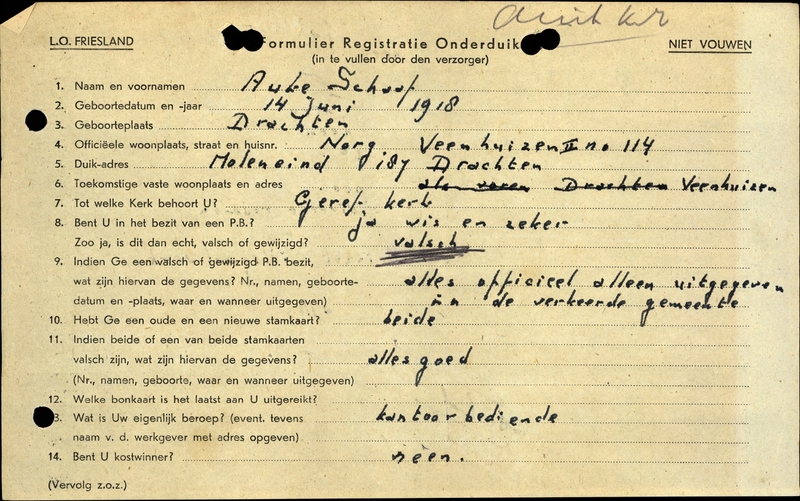 L.O. FRIESLAND
Formulier Registratie Onderduik
NIET VOUWEN
(in te vullen door den verzorger)
1. Naam en voornamen Auke Schaaf
2. Geboortedatum en -jaar 14 Juni 1918
3. Geboorteplaats Drachten
4. Officiëele woonplaats, straat en huisnr. Norg, Veenhuizen II no 114
5. Duik-adres Moleneind 187 Drachten
6. Toekomstige vaste woonplaats en adres als voren Drachten Veenhuizen
7. Tot welke Kerk behoort U? Geref. kerk
8. Bent U in het bezit van een P.B.? ja wis en zeker
Zoo ja, is dit dan echt, valsch of gewijzigd? valsch
9. Indien Ge een valsch of gewijzigd P.B. bezit,
wat zijn hiervan de gegevens? Nr., namen, geboorte- alles officieel alleen uitgegeven
datum en -plaats, waar en wanneer uitgegeven) in de verkeerde gemeente
10. Hebt Ge een oude en een nieuwe stamkaart? beide
11. Indien beide of een van beide stamkaarten
valsch zijn, wat zijn hiervan de gegevens? alles goed
(Nr., namen, geboorte, waar en wanneer uitgegeven)
12. Welke bonkaart is het laatst aan U uitgereikt?
3. Wat is Uw eigenlijk beroep? (event. tevens kantoorbediende
naam v. d. werkgever met adres opgeven)
14. Bent U kostwinner? neen.
(Vervolg z.o.z.)